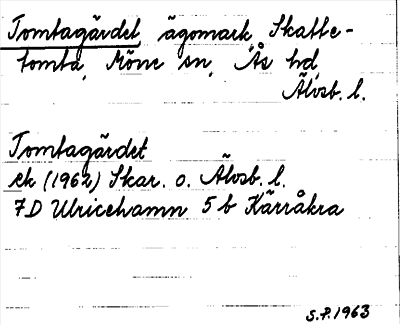 Tomtagärdet, ägomark, Skatte-
tomta, Möne sn, Ås hd,
Älvsb. l.
Tomtagärdet
ek (1962) Skar. o. Älvsb. l.
7D Ulricehamn 5 b Kärråkra
S.P. 1963